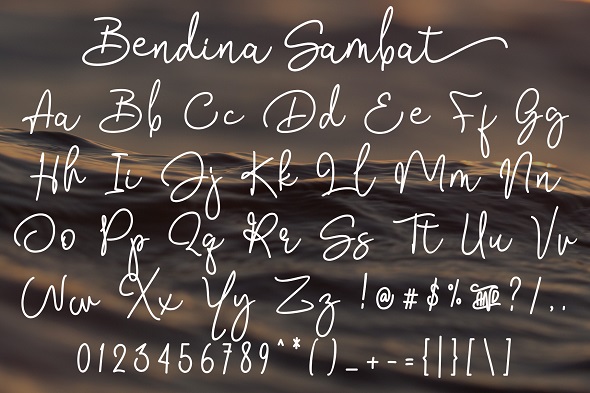 Bendina Sambat
Aa Bb Cc Dd Ee Ff Gg
Hh Ii Jj Kk Ll Mm Nn
Oo Pp Qq Rr Ss Tt Uu Vv
Ww Xx Yy Zz ! @ # $ % AND ? / , .
0123456789 ^ * ( ) _ + - = { | } [ \ ]